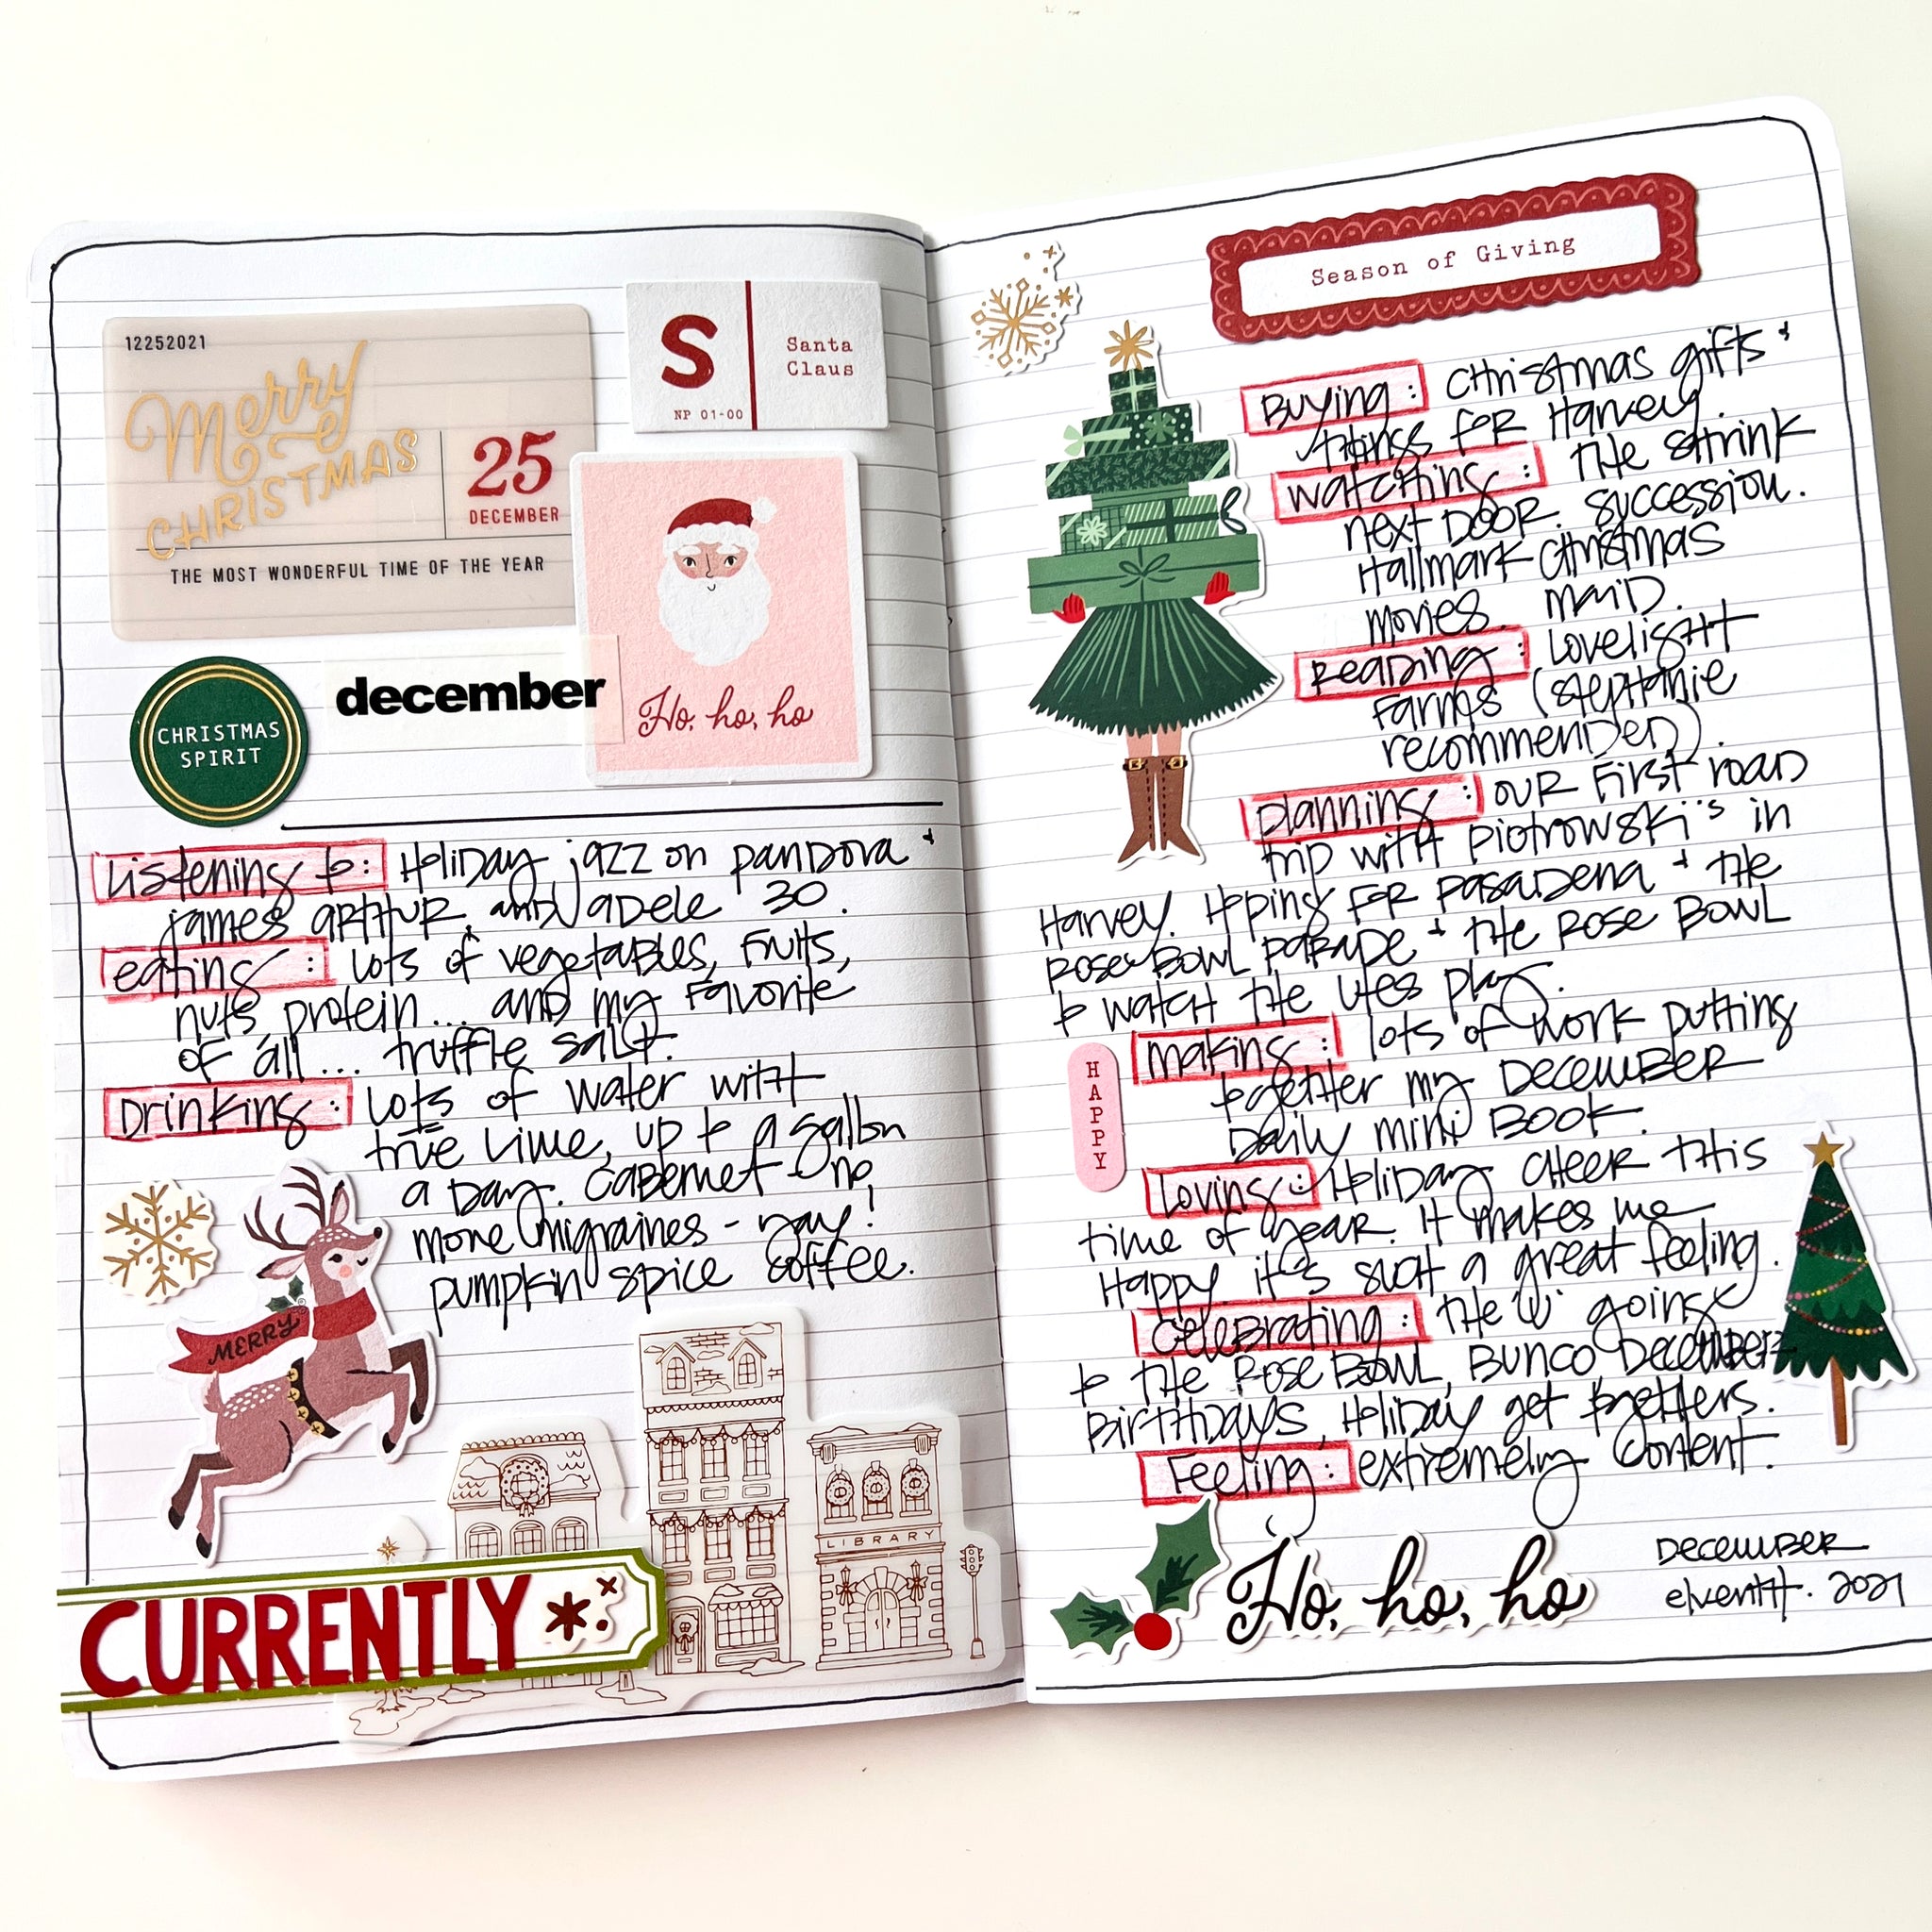 12252021
Merry
CHRISTMAS
25
DECEMBER
THE MOST WONDERFUL TIME OF THE YEAR
S
NP 01-00
Santa
Claus
Ho, ho, ho
CHRISTMAS
SPIRIT
december
Listening to: Holiday jazz on pandora +
james arthur, and adele 30.
eating: lots of vegetables, fruits,
nuts, protein... and my favorite
of all... truffle salt.
Drinking: lots of water with
true lime, up to a gallon
a day. Cabernet - no
more migraines - yay!
pumpkin spice coffee.
MERRY
LIBRARY
CURRENTLY
Season of Giving
Buying: Christmas gifts +
things for Harvey.
watching: the shrink
next door. succession.
Hallmark Christmas
movies. maid.
Reading: Lovelight
Farms (stephanie
recommended).
planning: our first road
trip with piotrowski's in
Harvey. Hoping for pasadena + the
Rose Bowl parade + the Rose Bowl
to watch the utes play.
making: lots of work putting
together my December
Daily mini Book.
HAPPY
Loving: Holiday cheer this
time of year. It makes me
Happy. it's such a great feeling.
Celebrating: the 'U' going
to the Rose Bowl, Bunco December
Birthdays, Holiday get togethers.
Feeling: extremely content.
Ho, ho, ho
December
eleventh. 2021